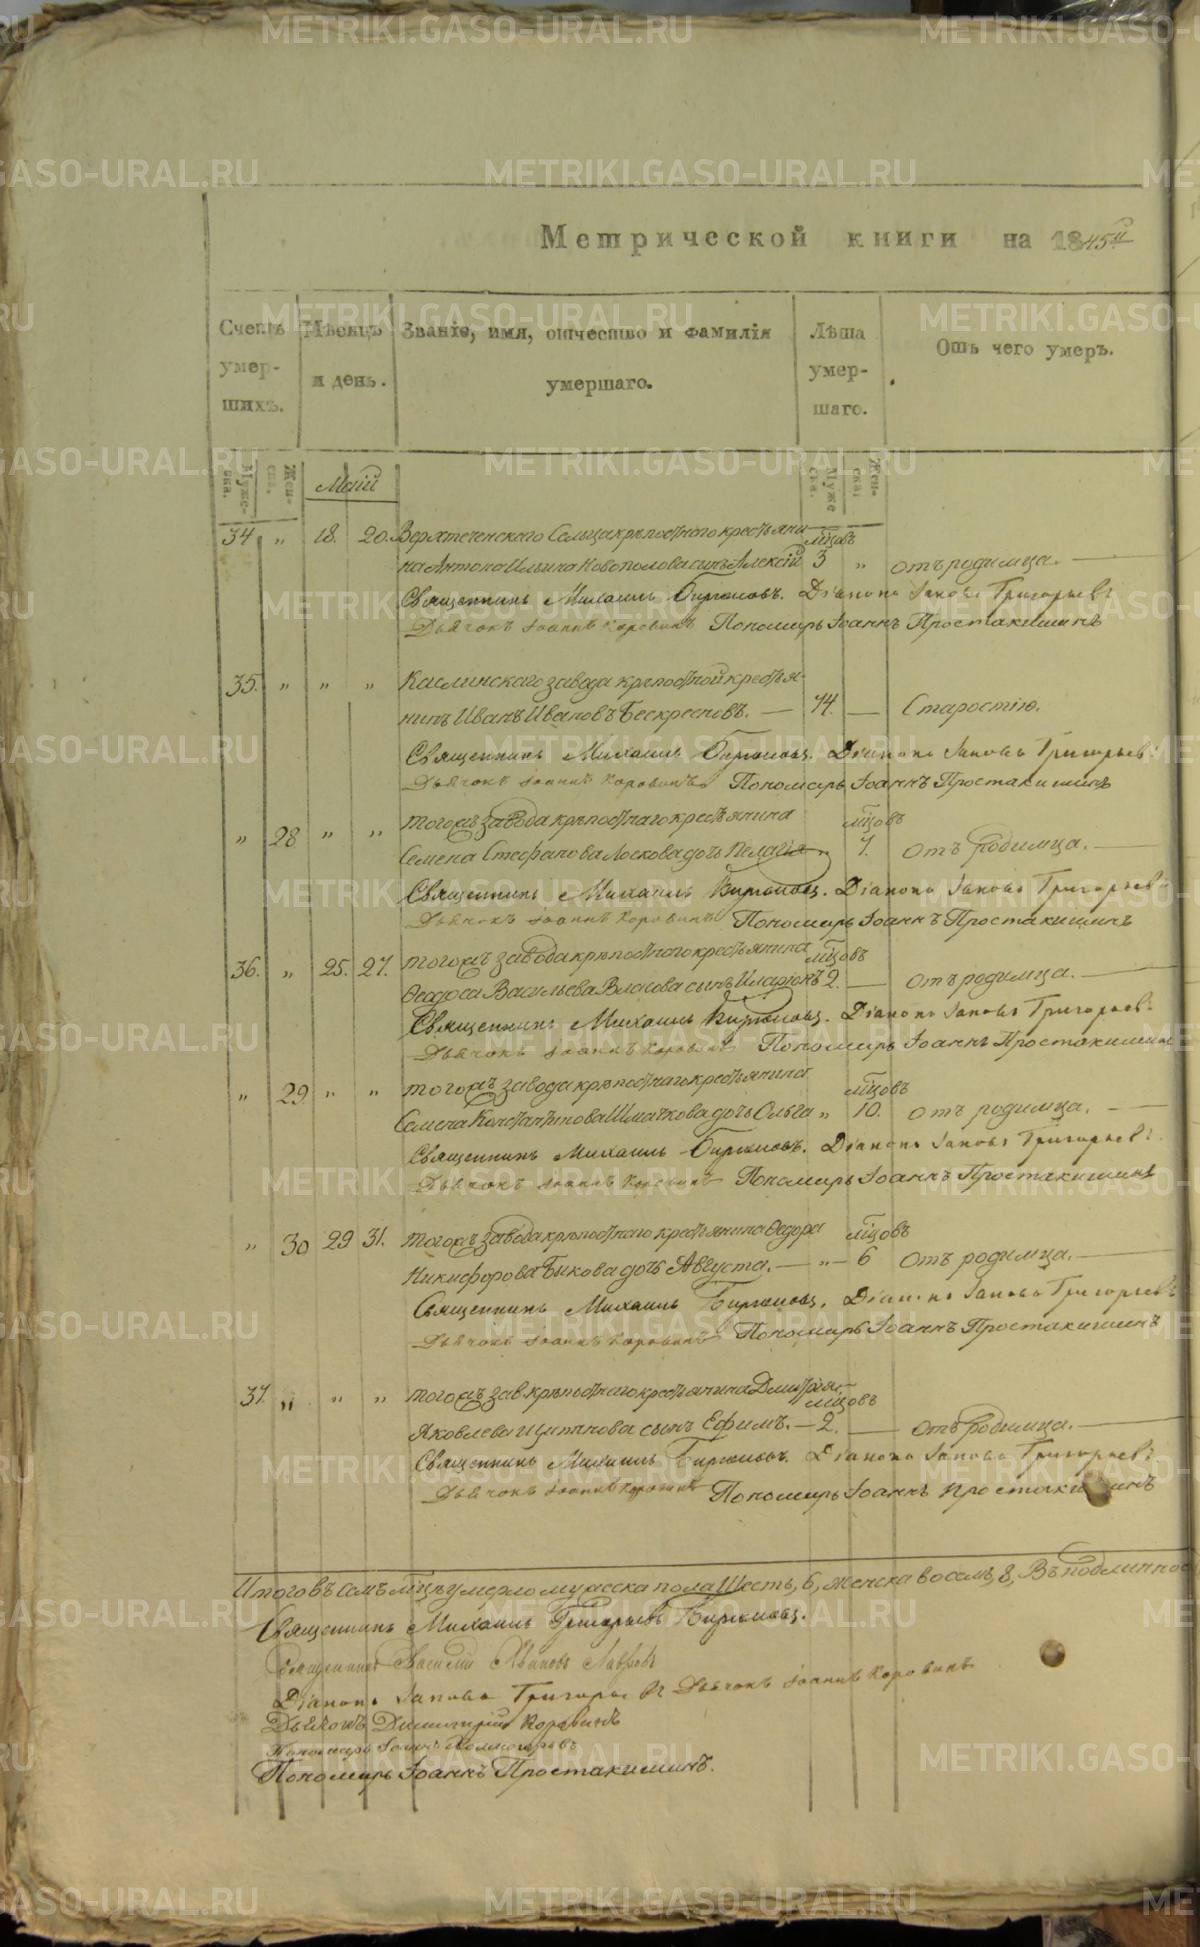 Метрической книги на 1845й
Счетъ умер- шихъ.
Мѣсяцъ и день.
Званіе, имя, отчество и фамилія умершаго.
Лѣта умер- шаго.
Отъ чего умеръ.
Муже- ска.
Жен- ска.
Муже ска.
Жен- ска.
Маій
34 „ 18. 20. Верхтеченскаго Сельца крѣпостного крестьяни мѣсцовъ
на Антона Ильина Новополова сынъ Алексій 3 „ отъ родимца.
Священникъ Михаилъ Бирюковъ. Діаконъ Іаковъ Григорьевъ
Дьячокъ Іоаннъ Коровинъ Пономарь Іоаннъ Простакишинъ
35. „ „ „ Каслинскаго завода крѣпостной крестья-
нинъ Иванъ Ивановъ Бескресновъ. — 74. — Старостію.
Священникъ Михаилъ Бирюковъ. Діаконъ Іаковъ Григорьевъ
Дьячокъ Іоаннъ Коровинъ Пономарь Іоаннъ Простакишинъ
„ 28 „ „ тогожъ завода крѣпостнаго крестьянина мѣсцовъ
Семена Стефанова Лоскова дочь Пелагія „ 7. отъ родимца.
Священникъ Михаилъ Бирюковъ. Діаконъ Іаковъ Григорьевъ
Дьячокъ Іоаннъ Коровинъ Пономарь Іоаннъ Простакишинъ
36. „ 25. 27. тогожъ завода крѣпостнаго крестьянина мѣсцовъ
Ѳеодоса Васильева Власова сынъ Иларіонъ 2. — отъ родимца.
Священникъ Михаилъ Бирюковъ. Діаконъ Іаковъ Григорьевъ
Дьячокъ Іоаннъ Коровинъ Пономарь Іоаннъ Простакишинъ
„ 29. „ „ тогожъ завода крѣпостнаго крестьянина мѣсцовъ
Семена Константинова Шмачкова дочь Ольга „ 10. отъ родимца.
Священникъ Михаилъ Бирюковъ. Діаконъ Іаковъ Григорьевъ
Дьячокъ Іоаннъ Коровинъ Пономарь Іоаннъ Простакишинъ
„ 30 29 31. тогожъ завода крѣпостнаго крестьянина Ѳедора мѣсцовъ
Никифорова Бикова дочь Августа. — „ — 6 отъ родимца.
Священникъ Михаилъ Бирюковъ. Діаконъ Іаковъ Григорьевъ
Дьячокъ Іоаннъ Коровинъ Пономарь Іоаннъ Простакишинъ
37. „ „ „ тогожъ зав. крѣпостнаго крестьянина Дмитрія мѣсцовъ
Яковлева Щипкова сынъ Ефимъ. — 2. — отъ родимца.
Священникъ Михаилъ Бирюковъ. Діаконъ Іаковъ Григорьевъ
Дьячокъ Іоаннъ Коровинъ Пономарь Іоаннъ Простакишинъ
Итого въ семъ мѣсцѣ умерло мужеска пола Шесть, 6, женска восемь, 8,
Священникъ Михаилъ Григорьевъ Бирюковъ.
Священникъ Василій Ивановъ Лавровъ
Діаконъ Іаковъ Григорьевъ Дьячокъ Іоаннъ Коровинъ
Дьячокъ Димитрій Коровинъ
Пономарь Іоаннъ
Пономарь Іоаннъ Простакишинъ.
METRIKI.GASO-URAL.RU